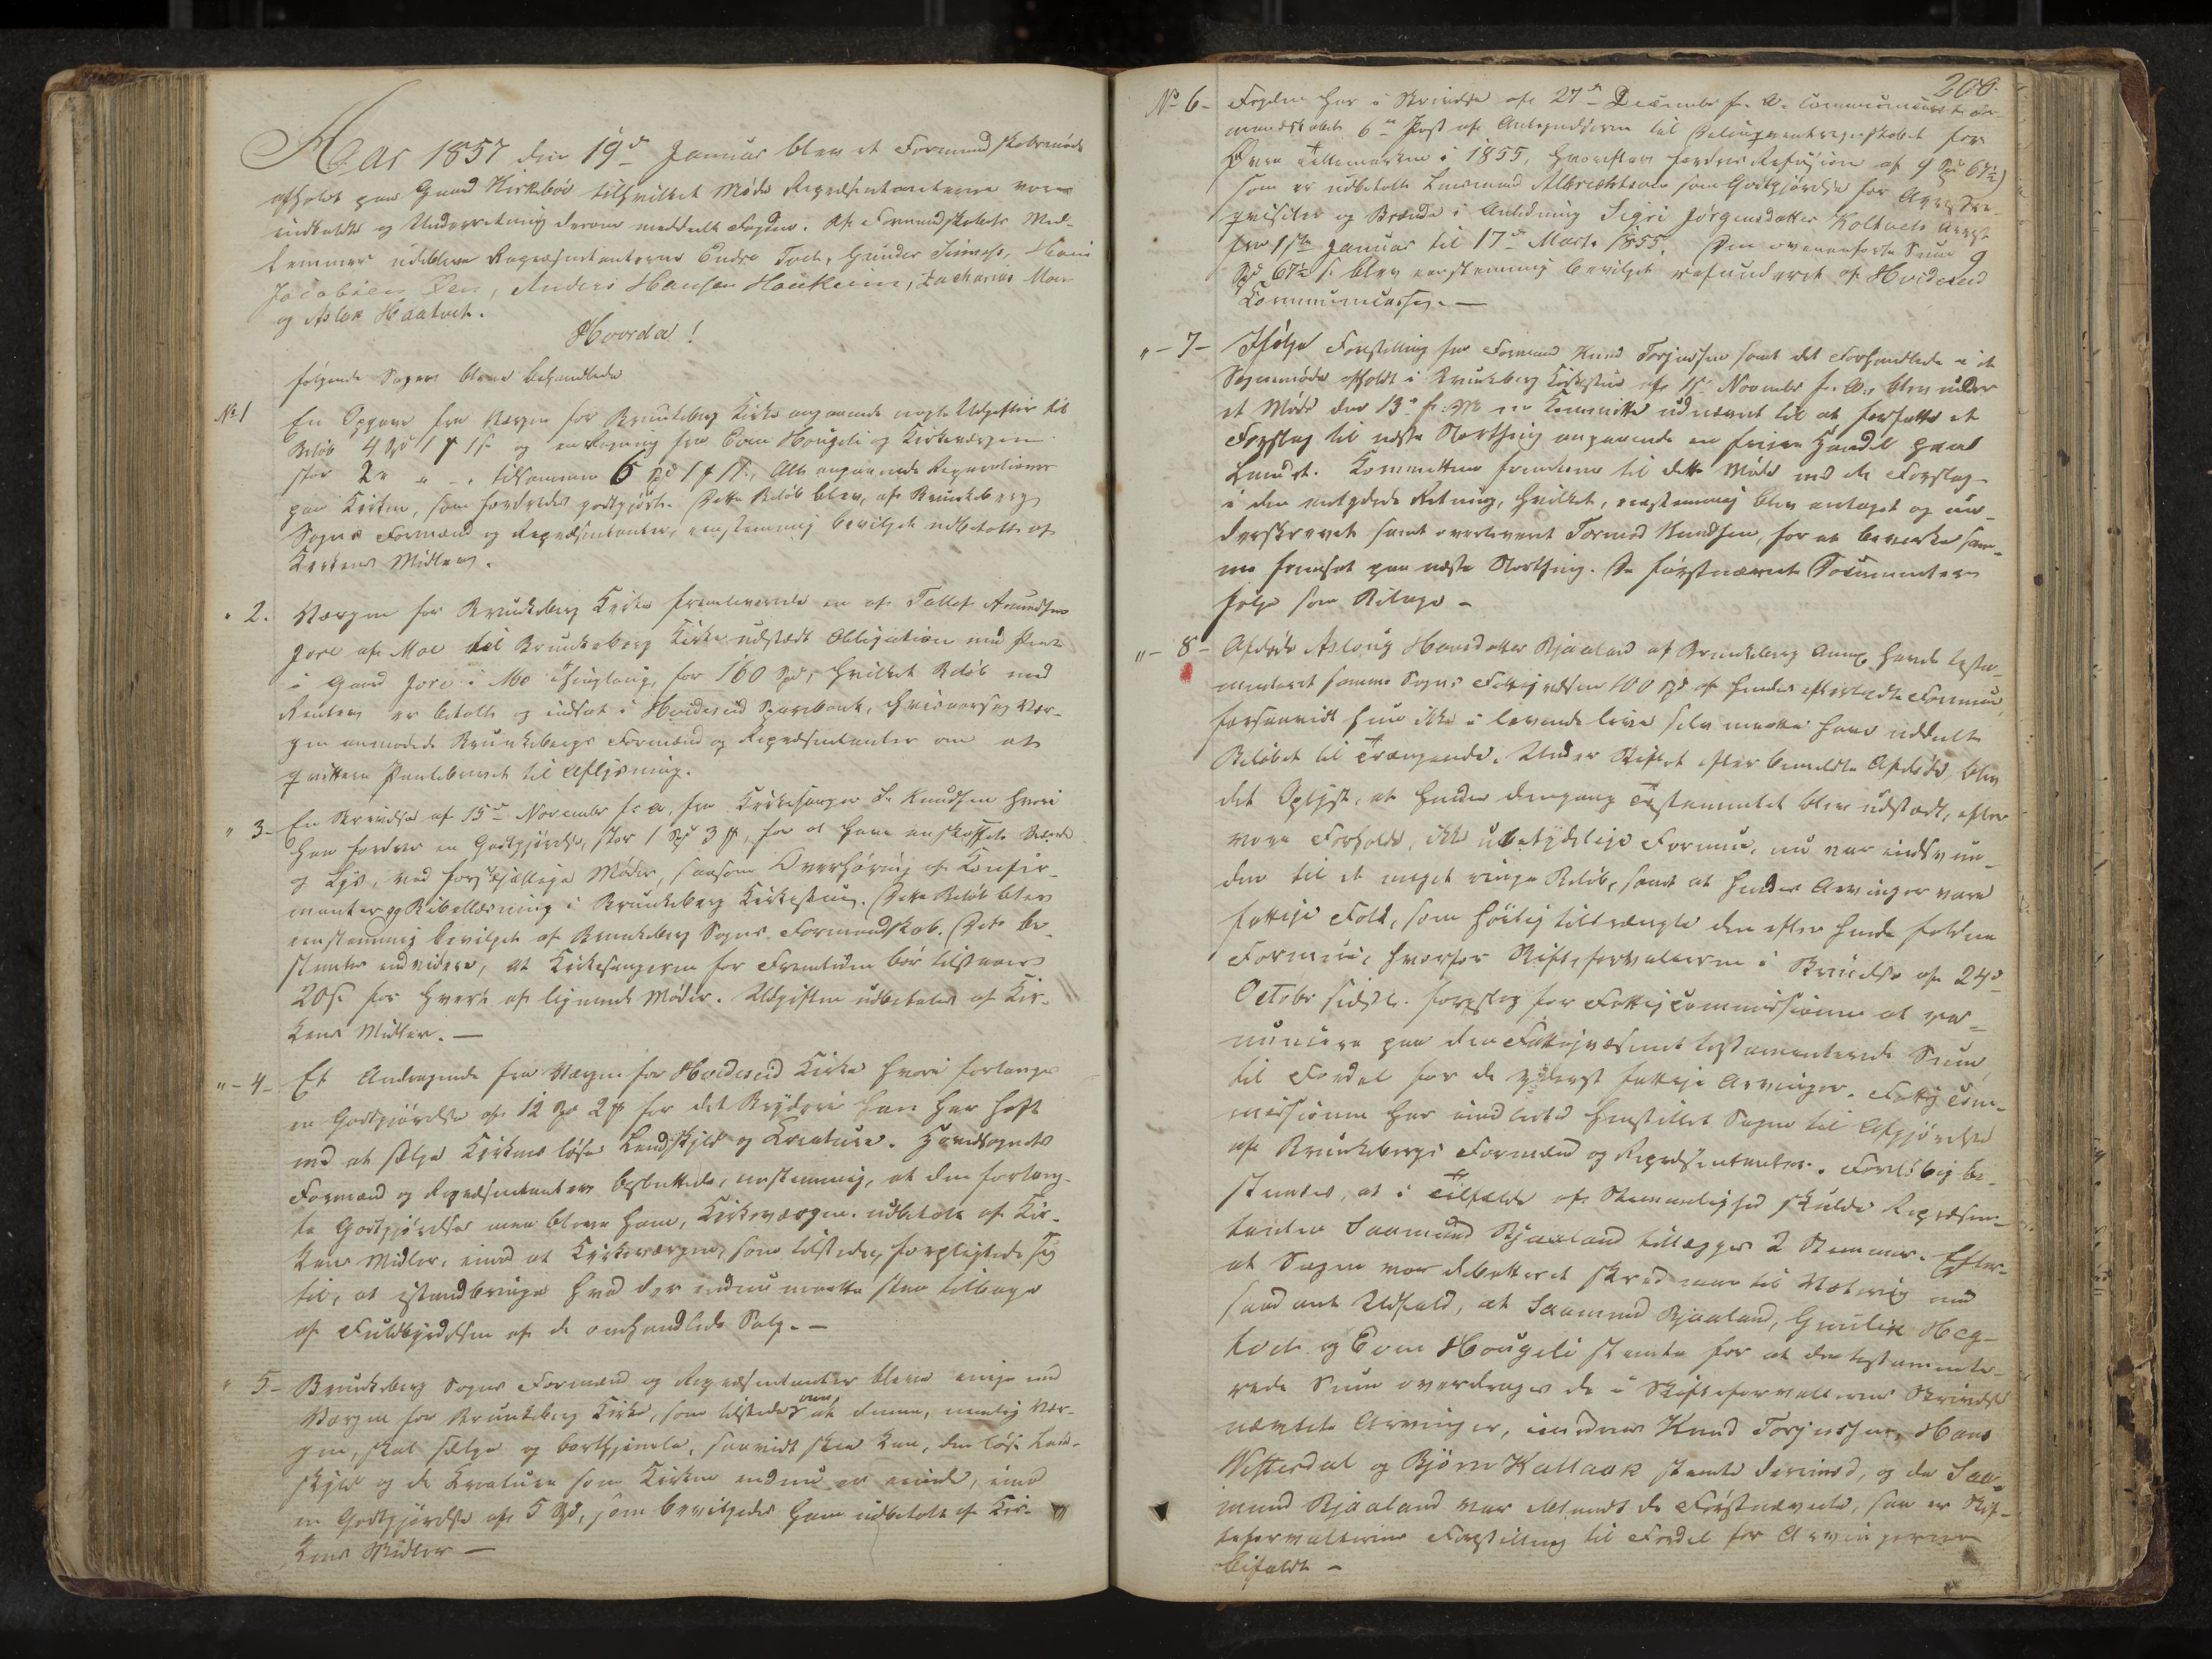 Aar 1857 den 19de Januar blev et Formandskabsmøde
afholdt paa Gaard Kirkebøe tilhvilket Møde Repræsentanterne vare
indkaldte og Underretning derom meddeelt Fogden. Af Formandskabets Med-
lemmer udebleve Repræsentanterne Endre Tvet, Gunder Simones, Hans
Jacobsen Øen, Anders Hansen Haukeim, Zacharias Moen
og Aslak Haatvet.
Hvorda!
følgende Sager bleve behandlede
No 1 En Opgave fra Værgen for Brunkeberg Kirke angaaende nogle Udgifter til
Beløb 4 Spd 1 # 1 s. og en Regning fra Even Hougeli og Kirkeværgen
stor 2 " " - . tilsammen 6 Spd 1 # 1 s., Alt angaaende Reparationer
paa Kirken, som fordredes godtgjorte. Dette Beløb blev, af Brunkebergs
Sogns Formænd og Repræsentanter, eenstemmig bevilget udbetalt af
Kirkens Midler.
" 2. Værgen for Brunkeberg Kirke fremleverede en af Tallef Aamundsen
Jore af Moe til Brunkeberg Kirke udstædt Obligation med Pant
i Gaard Jore i Mo Thinglaug, for 160 Spd, hvilket Beløb med
Renter er betalt og indsat i Hvideseid Sparebank, hvisaarsag Vær-
gen anmodede Brunkebergs Formænd og Repræsentanter om at
qvittere Pantebrevet til Aflysning.
" 3- En Skrivelse af 15de November f: a. fra Kirkesanger S. Knudsen hvori
han fordrer en Godtgjørelse, stor 1 Spd 3 #, for at have anskaffet Brænde
og Lys, ved forskjellige Møder, saasom Overhøring af Konfir-
manter og Bibellæsning i Brunkeberg Kirkestue. Dette Beløb blev
eenstemmig bevilget af Brunkeberg Sogns Formandskab. Det be-
stemtes endvidere, at Kirkesangeren for Fremtiden bør tilstaaes
20 s. for hvert af lignende Møder. Udgiften udbetales af Kir-
kens Midler. —
" - 4- Et Andragende fra Værgen for Hvideseid Kirke hvori forlanges
en Godtgjørelse af 12 Spd 2 # for det Bryderi han har haft
med at sælge Kirkens løse Landskyld og Kreature. Hovedsognets
Formænd og Repræsentanter besluttede, eenstemmig, at den forlang-
te Godtgjørelse maa blive ham, Kirkeværgen, udbetalt af Kir-
kens Midler, imod at Kirkeværgen, som tilstede, forpligtede sig
til, at istandbringe hvad der endnu maatte staa tilbage
af Fuldbyrdelsen af de omhandlede Salg. —
" 5- Brunkeberg Sogns Formænd og Repræsentanter bleve enige med
Værgen for Brunkeberg Kirke, som tilstede, om at denne, nemlig Vær-
gen, skal sælge og bortskjønne, saavidt skee kan, den løse Land-
skyld og de Kreature som Kirken endnu er eiende, imod
en Godtgjørelse af 5 Spd, som bevilgedes ham udbetalt af Kir-
kens Midler —
208.
No 6- Fogden har i Skrivelse af 27de December f. A. communiceret For-
mandskabet 6te Post af Antegnelserne til Delinqventregnskabet for
Øvre Tellemarken i 1855, hvorefter fordres Refusion af 9 Spd 67½ s
som er udbetalt Lensmand Albrechtsen som Godtgjørelse for Arrestre-
qvisiter og Brænde i Anledning Sigri Jørgensdatter Koltvets Arrest
fra 1ste Januar til 17de Marts 1855. Den ovenanførte Sum 9
Spd 67½ s. blev eenstemmig bevilget refunderet af Hvideseid
Communecasse. —
" - 7- Ifølge Forestilling fra Formand Knud Torjussen samt det Forhandlede i et
Sognemøde afholdt i Brunkeberg Kirkestue af 15 November f. A., blev under
et Møde den 13de f: M en Committe udnævnt til at forfatte et
Forslag til næste Storthing angaaende en friere Handel paa
Landet. Kommitteen fremkom til dette Møde med et Forslag
i den antydede Retning, hvilket, eenstemmig blev antaget og un-
derskrevet samt overleveret Tormod Knudsen, for at bevirke sam-
me fremsat paa næste Storthing. De førstnævnte Documenter
følge som Bilage -
" - 8- Afdøde Aslaug Hansdatter Bjaaland af Brunkeberg Annex havde testa-
menteret samme Sogns Fattigvæsen 100 Spd af hendes efterladte Formue,
forsaavidt hun ikke i levende Live selv maatte have uddeelt
Beløbet til Trængende. Under Skiftet efter bemeldte Afdøde, blev
det Oplyst, at hendes dengang Testamentet blev udstædt, efter
vore Forholde, ikke ubetydelige Formue, nu var indsvun-
den til et meget ringe Beløb, samt at hendes Arvinger vare
fattige Folk, som høilig tiltrængte den efter hende faldne
Formue, hvorfor Skifteforvalteren i Skrivelse af 24de
Octobr sidstl. foreslog for Fattigcommissionen at re-
nuncere paa den Fattigvæsenet testamenterede Sum,
til Fordel for de yderst fattige Arvinger. Fattigcom-
missionen har imidlertid henstillet Sagen til Afgjørelse
af Brunkebergs Formænd og Repræsentanter. Foreløbig be-
stemtes, at i Tilfælde af Stemmelighed skulde Repræsen-
tanten Saamund Bjaaland tillægges 2 Stemmer. Efter-
at Sagen var debatteret skred man til Votering med
saadant Udfald, at Saamund Bjaaland, Gunleik Heg-
tvet og Even Hougeli stemte for at den testamente-
rede Sum overdrages de i Skifteforvalterens Skrivelse
nævnte Arvinger, imedens Knud Torjussen, Hans
Vistesdal og Bjørn Kallaak stemte derimod, og da Saa-
mund Bjaaland var iblandt de Førstnævnte, saa er Skif-
teforvalterens Forestilling til Fordel for Arvingerne
bifaldt -